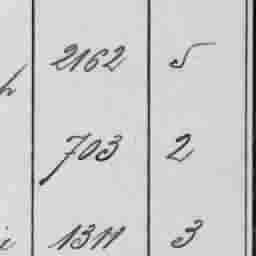 2162 5
703 2
1311 3